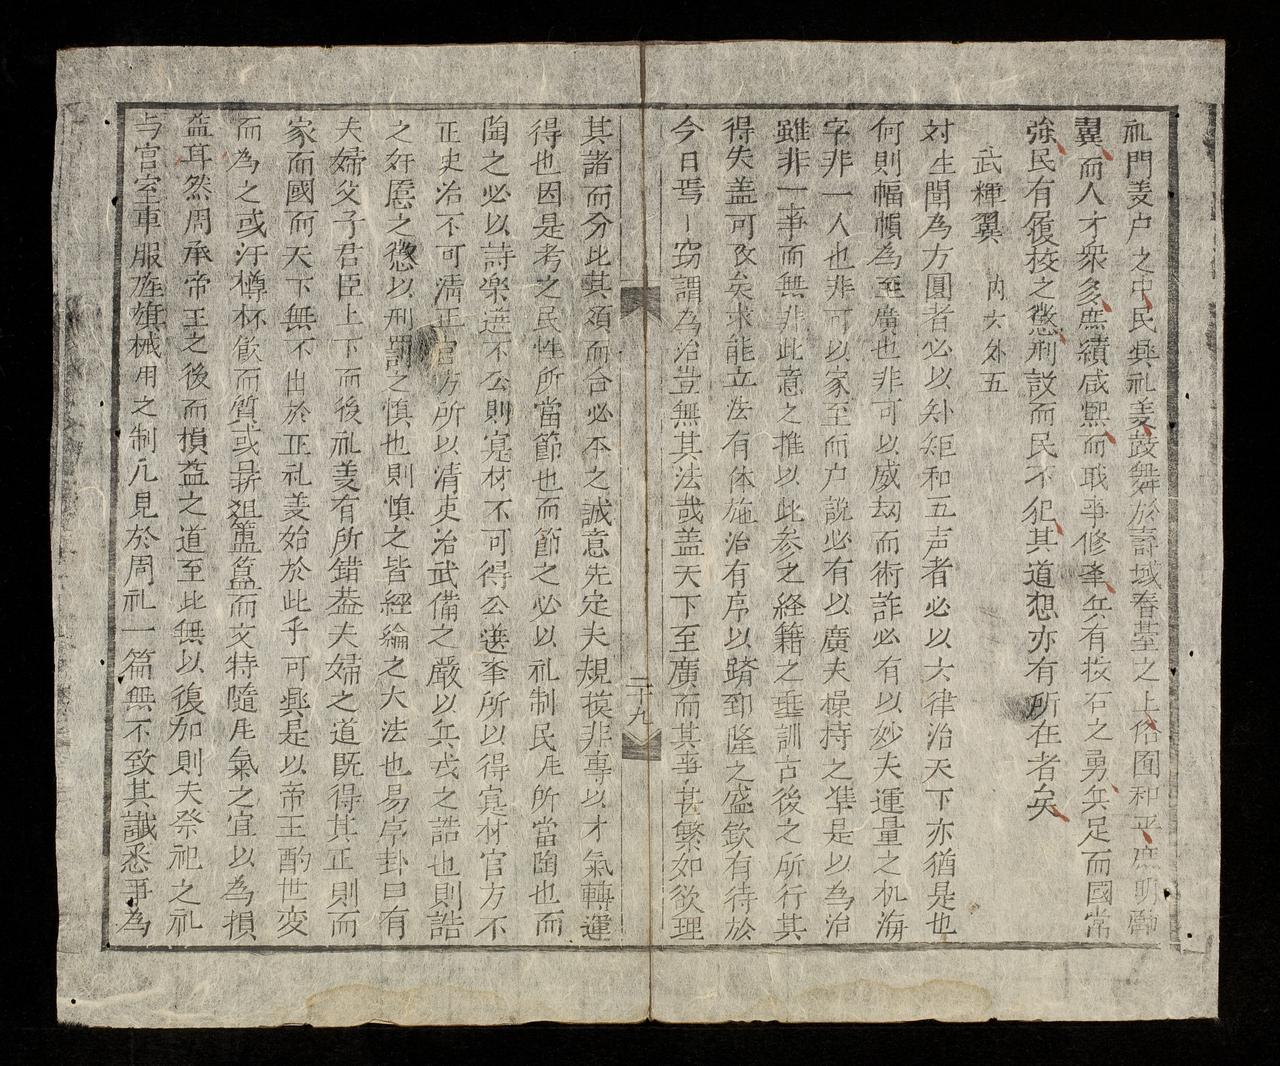 礼門義户之中民興礼義鼓舞於壽域春䑓之上俗囿和平庶明勵
翼而人才衆多庶績咸熙而職事修奉兵有投石之勇兵足而國常
強民有履校之懲刑設而民不犯其道想亦有所在者矣
武輝翼 内六外五
対生聞為方圓者必以矩和五声者必以六律治天下亦猶是也
何則幅幀為至廣也非可以威刼而術詐必有以妙夫運量之机海
字非一人也非可以家至而户説必有以廣夫操持之準是以為治
雖非一事而無非此意之推以此参之経籍之垂訓古後之所行其
得失盖可攷矣求能立法有体施治有序以躋郅隆之盛欽有待於
今日焉〻窃謂為治豈無其法哉盖天下至廣而其事甚繁如欲理
二十九
其諸而分比其頒而合必本之誠意先定夫規模非專以才氣轉運
得也因是考之民性所當節也而節之必以礼制民生所當陶也而
陶之必以詩楽選不公則寔材不可得公選奉所以得寔材官方不
正吏治不可清正官方所以清吏治武備之嚴以兵戎之詰也則詰
之奸慝之懲以刑罰之慎也則慎之皆經綸之大法也易序卦曰有
夫婦父子君臣上下而後礼義有所錯葢夫婦之道既得其正則而
家而國而天下無不出於正礼義始於此乎可興是以帝王酌世変
而為之或汙樽杯飲而質或昇俎簠簋而文特隨生氣之宜以為損
益耳然周承帝王之後而損益之道至此無以復加則夫祭祀之礼
与宫室車服旌旗械用之制凡見於周礼一篇無不致其讖悉事為